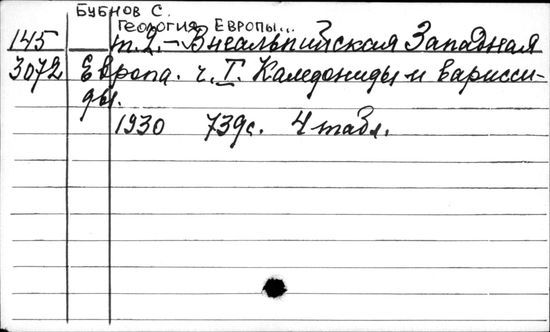 Бубнов С.
Геология Европы...
145 т.2. – Внеальпийская Западная
3072 Европа. ч. I. Каледониды и варисси-
ды.
1930 739с. 4 табл.